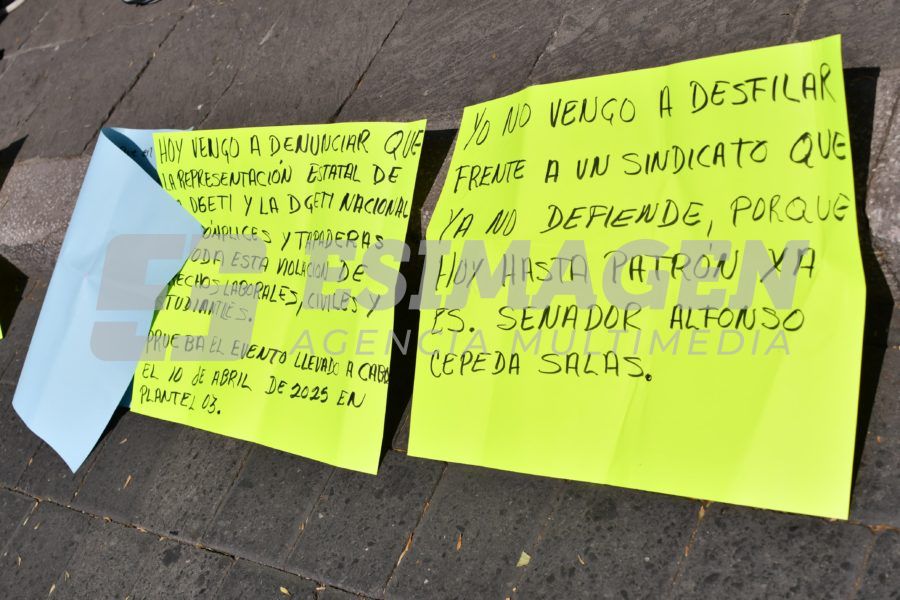 HOY VENGO A DENUNCIAR QUE
LA REPRESENTACIÓN ESTATAL DE
DGETI Y LA DGETI NACIONAL
CÓMPLICES Y TAPADERAS
TODA ESTA VIOLACIÓN DE
LABORALES, CIVILES Y
ESTUDIANTILES.
PRUEBA EL EVENTO LLEVADO A CABO
EL 10 DE ABRIL DE 2025 EN
PLANTEL 03.
YO NO VENGO A DESFILAR
FRENTE A UN SINDICATO QUE
YA NO DEFIENDE, PORQUE
HOY HASTA PATRÓN YA
ES. SENADOR ALFONSO
CEPEDA SALAS.
ESIMAGEN
AGENCIA MULTIMEDIA